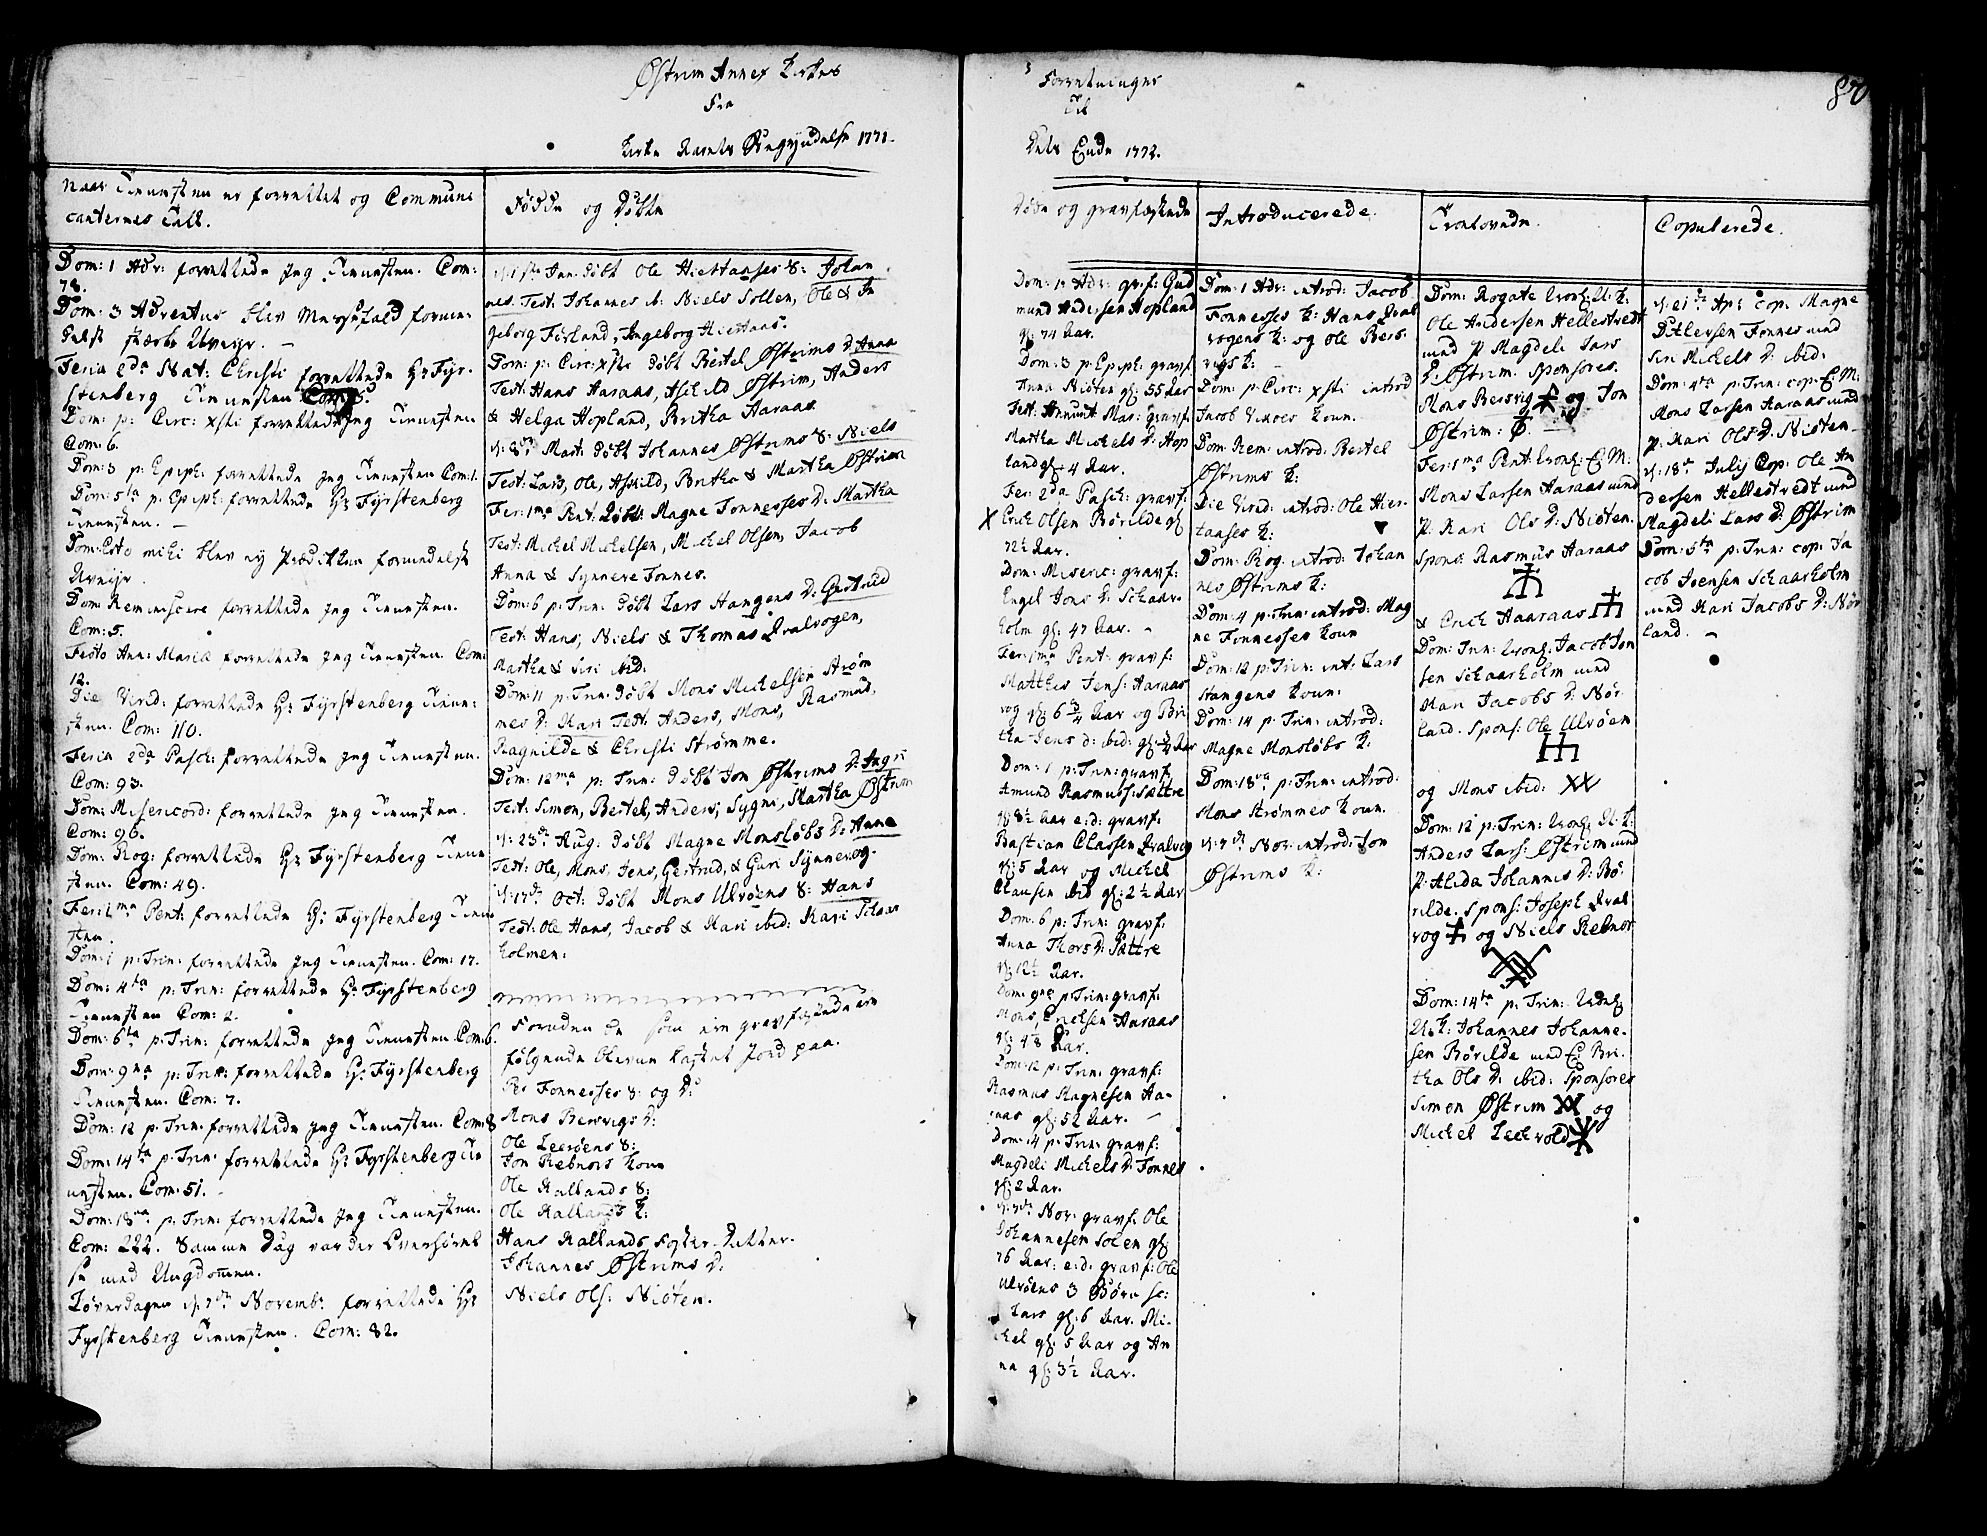 Østrim Annex Kirkes
Fra
Kirke Aarets Begyndelse 1771.
Naar Tienesten er forrettet og Communi
canternes Tall.
Fødde og Døbte
Dom: 1 Adv: forrettede jeg Tienesten. Com:
78.
Dom: 3 Adventus blev Messefald forme-
delst stærk Uveyr. —
Feria 2da Nat: Christi forrettede Hr Fyr-
stenberg Tienesten
Dom: p: Circ: xsti forrettede jeg Tienesten.
Com: 6.
Dom: 3 p: Epiph: forrettede jeg Tienesten Com: 1.
Dom: 5ta p: Epiph: forrettede Hr Fyrstenberg
Tienesten. —
Dom: Esto mihi blev ey Prædikken formedelst
Uveyr.
Dom: Reminiscere forrettede jeg Tienesten.
Com: 5.
Festo Ann: Mariæ forrettede jeg Tienesten. Com:
12.
Die Virid: forrettede Hr Fyrstenberg Tiene-
sten. Com: 110.
Feria 2da Pasch: forrettede jeg Tienesten.
Com: 93.
Dom: Misericord: forrettede jeg Tienesten.
Com: 96.
Dom: Rog: forrettede Hr Fyrstenberg Tiene
sten. Com: 49.
Feria 1ma Pent: forrettede Hr Fyrstenberg Tiene
sten.
Dom: 1 p: Trin: forrettede jeg Tienesten. Com: 17.
Dom: 4ta p: Trin: forrettede Hr Fyrstenberg
Tienesten Com: 2.
Dom: 6ta p: Trin: forrettede jeg Tienesten. Com: 6.
Dom: 9na p: Trin: forrettede Hr Fyrstenberg
Tienesten. Com: 7.
Dom: 12 p: Trin: forrettede jeg Tienesten. Com: 8
Dom: 14ta p: Trin: forrettede Hr Fyrstenberg Tie
nesten. Com: 51.
Dom: 18va p: Trin: forrettede jeg Tienesten.
Com: 222. Samme Dag var der Overhørel
se med Ungdommen.
Løverdagen d: 7de Novembr forrettede Hr
Fyrstenberg Tienesten. Com: 82.
d: 1ste Jan: døbt Ole Hiettaases S: Johan
nes. Test: Johannes ib: Niels Sollen, Ole & In
geborg Førland, Ingeborg Hiettaas.
Dom: p: Circ: xsti døbt Bertel Østrims D: Anna
Test: Hans Aaraas, Askild Østrim, Anders
& Helga Hopland, Britha Aaraas.
d: 8de Mart: døbt Johannes Østrims S: Niels
Test: Lars, Ole, Askild, Britha & Martha Østrim
Fer: 1ma Pent: døbt Magne Fonnesses D: Martha
Test: Michel Michelsen, Michel Olsen, Jacob
Anna & Synneve Fonnes.
Dom: 6 p: Trin: døbt Lars Hangens D: Gertrud
Test: Hans, Niels & Thomas Qvalvogen,
Martha & Siri ibid:
Dom: 11 p: Trin: døbt Mons Michelsen Strøm
mes D: Kari Test: Anders, Mons, Rasmus,
Ragnilde & Christi Strømme.
Dom: 12ma p: Trin: døbt Jon Østrims D: Ingri
Test: Simon, Bertel, Anders, Sygni, Martha Østrim
d: 23de Aug: døbt Magne Monsløbs D: Anna
Test: Ole, Mons, Jens, Gertrud, & Guri Synnevog.
d: 17de Oct: døbt Mons Ulvøens S: Hans
Test: Ole, Hans, Jacob & Kari ibid: Kari Schaar
holmen.
Foruden de som ere gravfæstede ere
følgende bleven kastet Jord paa.
Per Fonnesses S: og D:
Mons Bervigs D:
Ole Leerøens S:
Jon Rebnors Kone
Ole Kallands S:
Ole Kallands K:
Hans Kallands Foster-Datter.
Johannes Østrims D:
Niels Ols: Niøten.
Forretninger
Til
Dets Ende 1772.
87
Døde og gravfæstede
Introducerede.
Trolovede.
Copulerede.
Dom: 1 Adv: grf: Gud
mund Andersen Hopland
gl: 74 Aar.
Dom: 3 p: Epiph: gravf:
Anna Niøten gl: 55 Aar
Fest: Annunt Mar: gravf:
Martha Michels D: Hop
land gl: 4 Aar.
Fer: 2da Pasch: gravf:
X Erich Olsen Børilde gl:
72½ Aar.
Dom: Miseric: gravf:
Engel Jons D: Schaar-
holm gl: 47 Aar. —
Fer: 1ma Pent: gravf:
Matthis Jens: Aaraas
vog gl: 6 ¾ Aar og Bri
tha Jens D: ibid: gl: ¾ Aar
Dom: 1 p: Trin: gravf:
Amund Rasmuss: Sættre
gl: 8½ Aar e: d: gravf:
Bastian Classen Qvalvog
gl: 5 Aar og Michel
Clausen ibid gl: 2½ Aar
Dom: 6 p: Trin: gravf:
Anna Thors D: Sættre
gl: 12½ Aar.
Dom: 9na p: Trin: gravf:
Mons Erichsen Aaraas
gl: 48 Aar.
Dom: 12 p: Trin: gravf:
Rasmus Magnesen Aa-
raas gl: 52 Aar. —
Dom: 14 p: Trin: gravf:
Magdeli Michels D: Fonnes
gl: 2 Aar.
d: 7de Nov: gravf: Ole
Johannesen Solen gl:
76 Aar: e: d: gravf: Ole
Ulvøens 3 Børn sc:
Lars gl: 6 Aar. Mi-
chel gl: 5 Aar og An
na gl: 3½ Aar.
Dom: 1 Adv: introd: Jacob
Fonnesses K: Hans Qval
vogens K: og Ole Ber-
vigs K: —
Dom: p: Circ: xsti introd
Jacob Kone.
Dom: Rem: introd: Bertel
Østrims K:
Die Virid: introd: Ole Hiet-
taases K:
Dom: Rog: introd: Johan
nes Østrims K:
Dom: 4 p: Trin: introd: Mag
ne Fonnesses Kone
Dom: 12 p: Trin: int: Lars
Hangens Kone:
Dom: 14 p: Trin: introd:
Magne Monsløbs K:
Dom: 18va p: Trin: introd:
Mons Strømmes Kone.
d: 7de Nov: introd: Jon
Østrims K:
Dom: Rogate trol: U: K:
Ole Andersen Hellestvedt
med P: Magdeli Lars
D: Østrim. Sponsores.
Mons Bervig og Jon
Østrim:
Fer: 1ma Pent: trol: E: M:
Mons Larsen Aaraas med
P: Kari Ols D: Niøten.
Spons: Rasmus Aaraas
& Erich Aaraas
Dom: Trin: trol: Jacob Jon
sen Schaarholm med
Kari Jacobs D: Nør
land. Spons: Ole Ulvøen
og Mons ibid:
Dom: 12 p: Trin: trol: U: K:
Anders Lars: Østrim med
P: Alida Johannis D: Bø-
rilde. Spons: Joseph Qval
vog og Niels Rebnor
Dom: 14ta p: Trin: trol:
U: K: Johannes Johanne-
sen Børilde med E: Bri-
tha Ols D: ibid: Sponsores
Simon Østrim og
Michel Lechvold
d: 21de Apr: cop. Magne
Ditlevsen Fonnes med
Siri Michels D: ibid:
Dom: 4ta p: Trin: cop: E: M:
Mons Larsen Aaraas med
P: Kari Ols D: Niøten.
d: 18de Julij Cop: Ole An
dersen Hellestvedt med
Magdeli Lars D: Østrim
Dom: 5ta p: Trin: cop: Ja
cob Joensen Schaarholm
med Kari Jacobs D: Nør
land. —